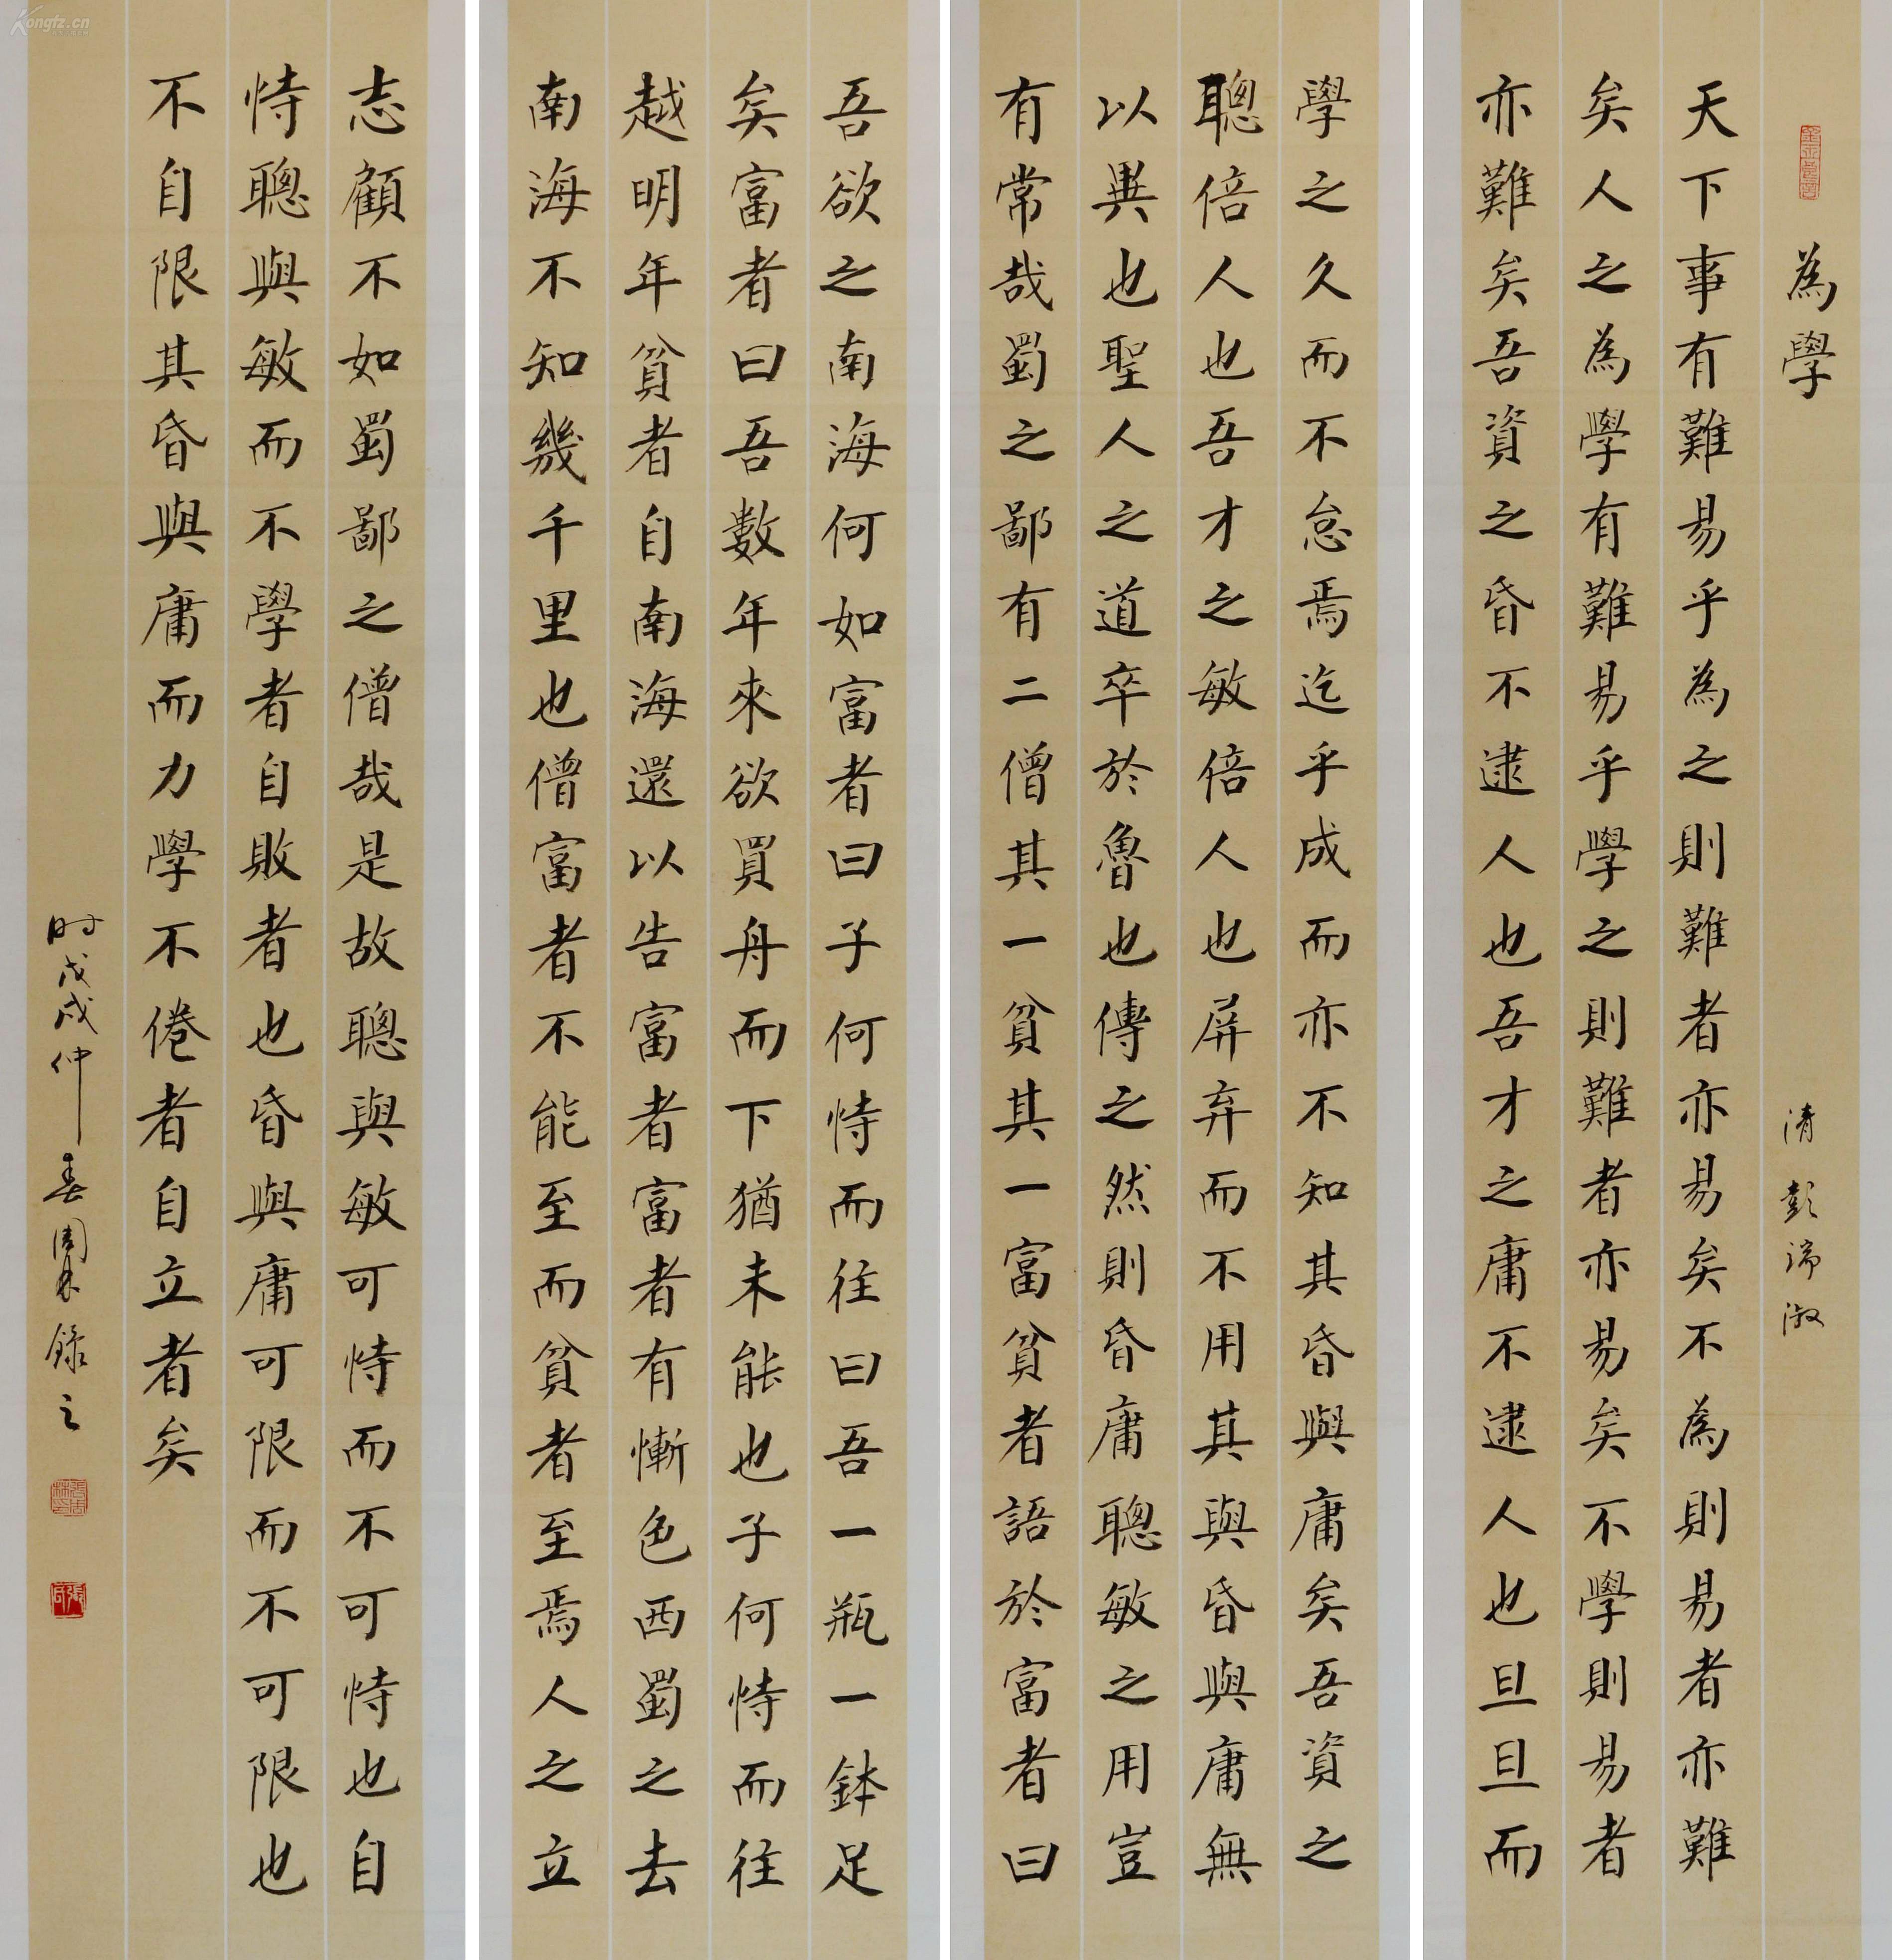 為學
清 彭端淑
天下事有難易乎為之則難者亦易矣不為則易者亦難
矣人之為學有難易乎學之則難者亦易矣不學則易者
亦難矣吾資之昏不逮人也吾才之庸不逮人也旦旦而
學之久而不怠焉迄乎成而亦不知其昏與庸矣吾資之
聰倍人也吾才之敏倍人也屏弃而不用其與昏與庸無
以異也聖人之道卒於魯也傳之然則昏庸聰敏之用豈
有常哉蜀之鄙有二僧其一貧其一富貧者語於富者曰
吾欲之南海何如富者曰子何恃而往曰吾一瓶一鉢足
矣富者曰吾數年來欲買舟而下猶未能也子何恃而往
越明年貧者自南海還以告富者富者有慚色西蜀之去
南海不知幾千里也僧富者不能至而貧者至焉人之立
志顧不如蜀鄙之僧哉是故聰與敏可恃而不可恃也自
恃聰與敏而不學者自敗者也昏與庸可限而不可限也
不自限其昏與庸而力學不倦者自立者矣
时戊戌仲春周林錄之
Kongfz.cn